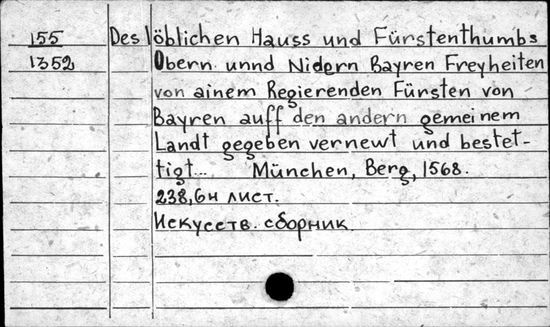 155 Des löblichen Hauss und Fürstenthumbs
1352 Obern unnd Nidern Bayren Freyheiten
von ainem Regierenden Fürsten von
Bayren auff den andern gemeinem
Landt gegeben vernewt und bestet-
tigt... München, Berg, 1568.
238,6н лист.
Искусств. сборник.